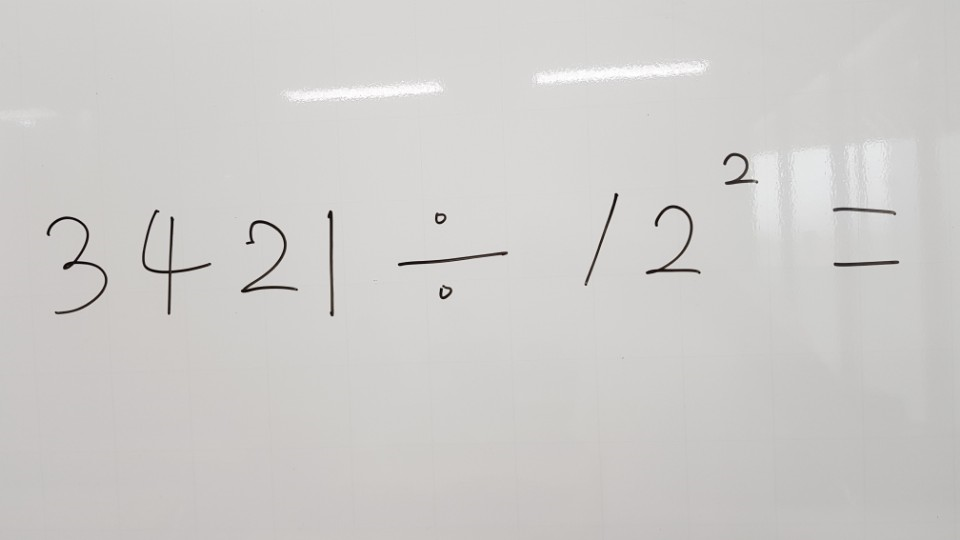 3421 ÷ 12² =